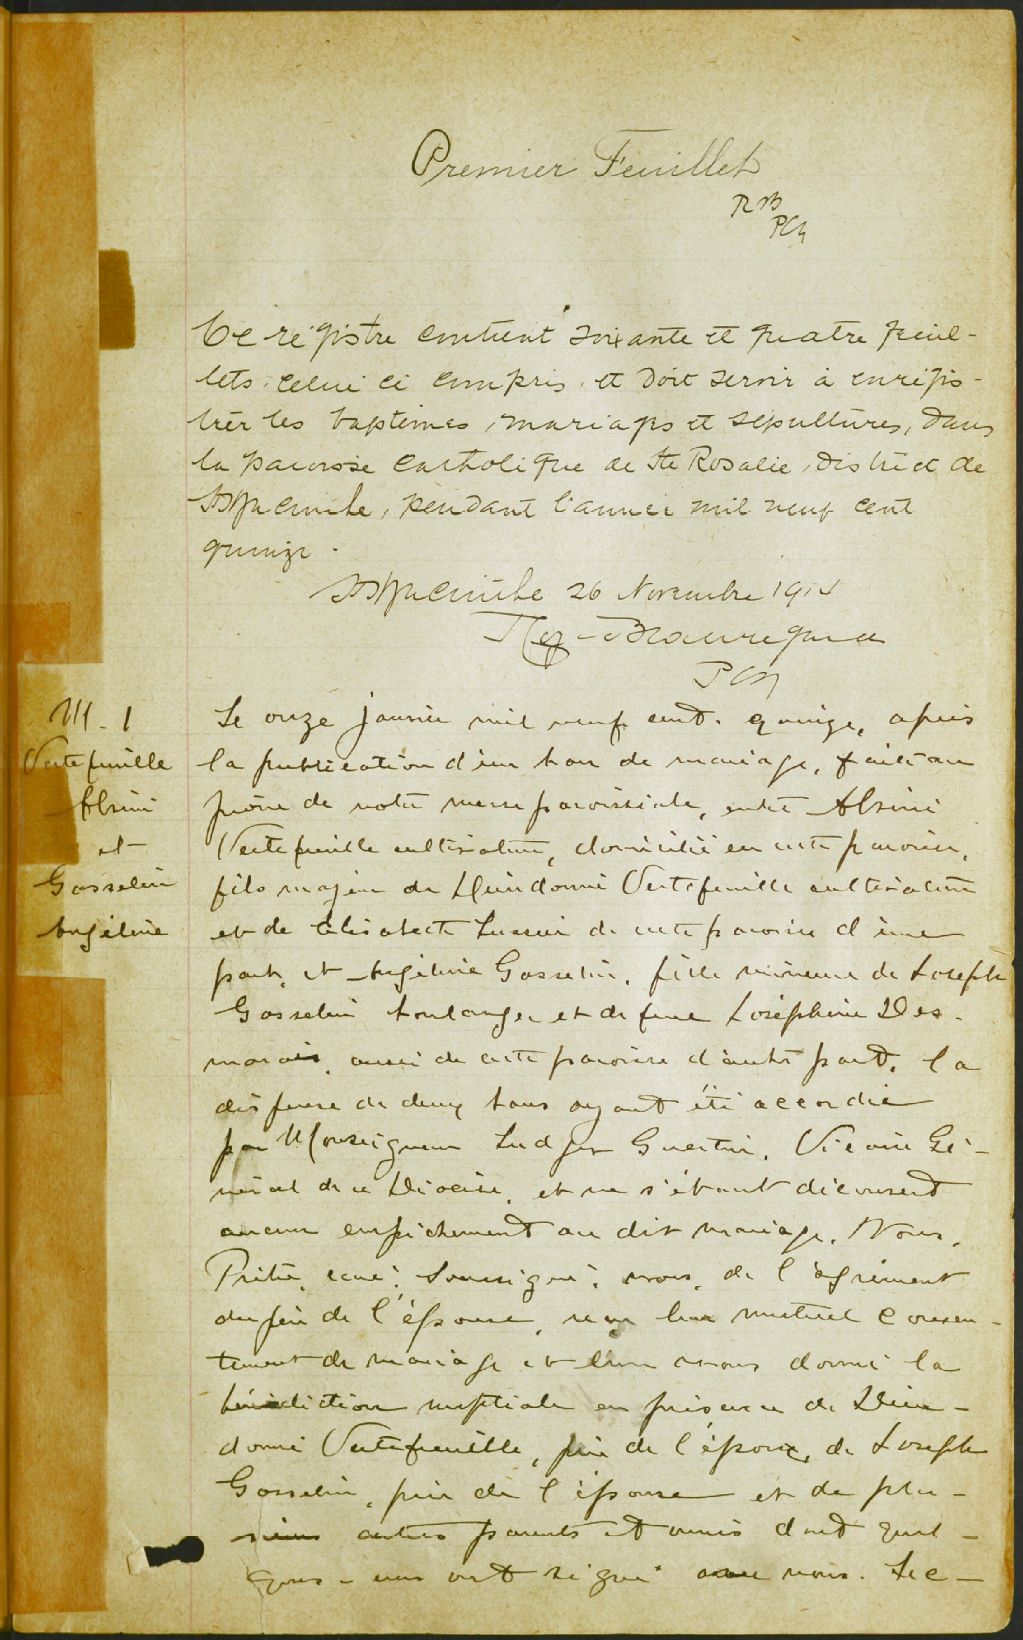 Premier Feuillet
RB
PCS
Ce registre contient soixante et quatre feuil-
lets, celui ci compris, et doit servir à enregis-
trer les baptêmes, mariages et sépultures, dans
la paroisse catholique de Ste Rosalie, district de
St Hyacinthe, pendant l'année mil neuf cent
quinze.
St Hyacinthe 26 Novembre 1914
Beauregard
PCS
M. 1
Vertefeuille
Absini
et
Gosselin
Angéline
Le onze janvier mil neuf cent quinze, après
la publication d'un ban de mariage, faite au
prône de notre messe paroissiale, entre Absini
Vertefeuille cultivateur, domicilié en cette paroisse,
fils majeur de Dieudonné Vertefeuille cultivateur
et de Elisabeth Lussier de cette paroisse d'une
part, et Angéline Gosselin, fille mineure de Joseph
Gosselin boulanger et de feue Joséphine Des-
marais, aussi de cette paroisse d'autre part, la
dispense de deux bans ayant été accordée
par Monseigneur Ludger Guertin, Vicaire Gé-
néral de ce Diocèse, et ne s'étant découvert
aucun empêchement au dit mariage, Nous,
Prêtre, curé, soussigné, avons, de l'agrément
du père de l'épouse, reçu leur mutuel consen-
tement de mariage et leur avons donné la
bénédiction nuptiale en présence de Dieu-
donné Vertefeuille, père de l'époux, de Joseph
Gosselin, père de l'épouse et de plu-
sieurs autres parents et amis dont quel-
ques-uns ont signé avec nous. Lec-